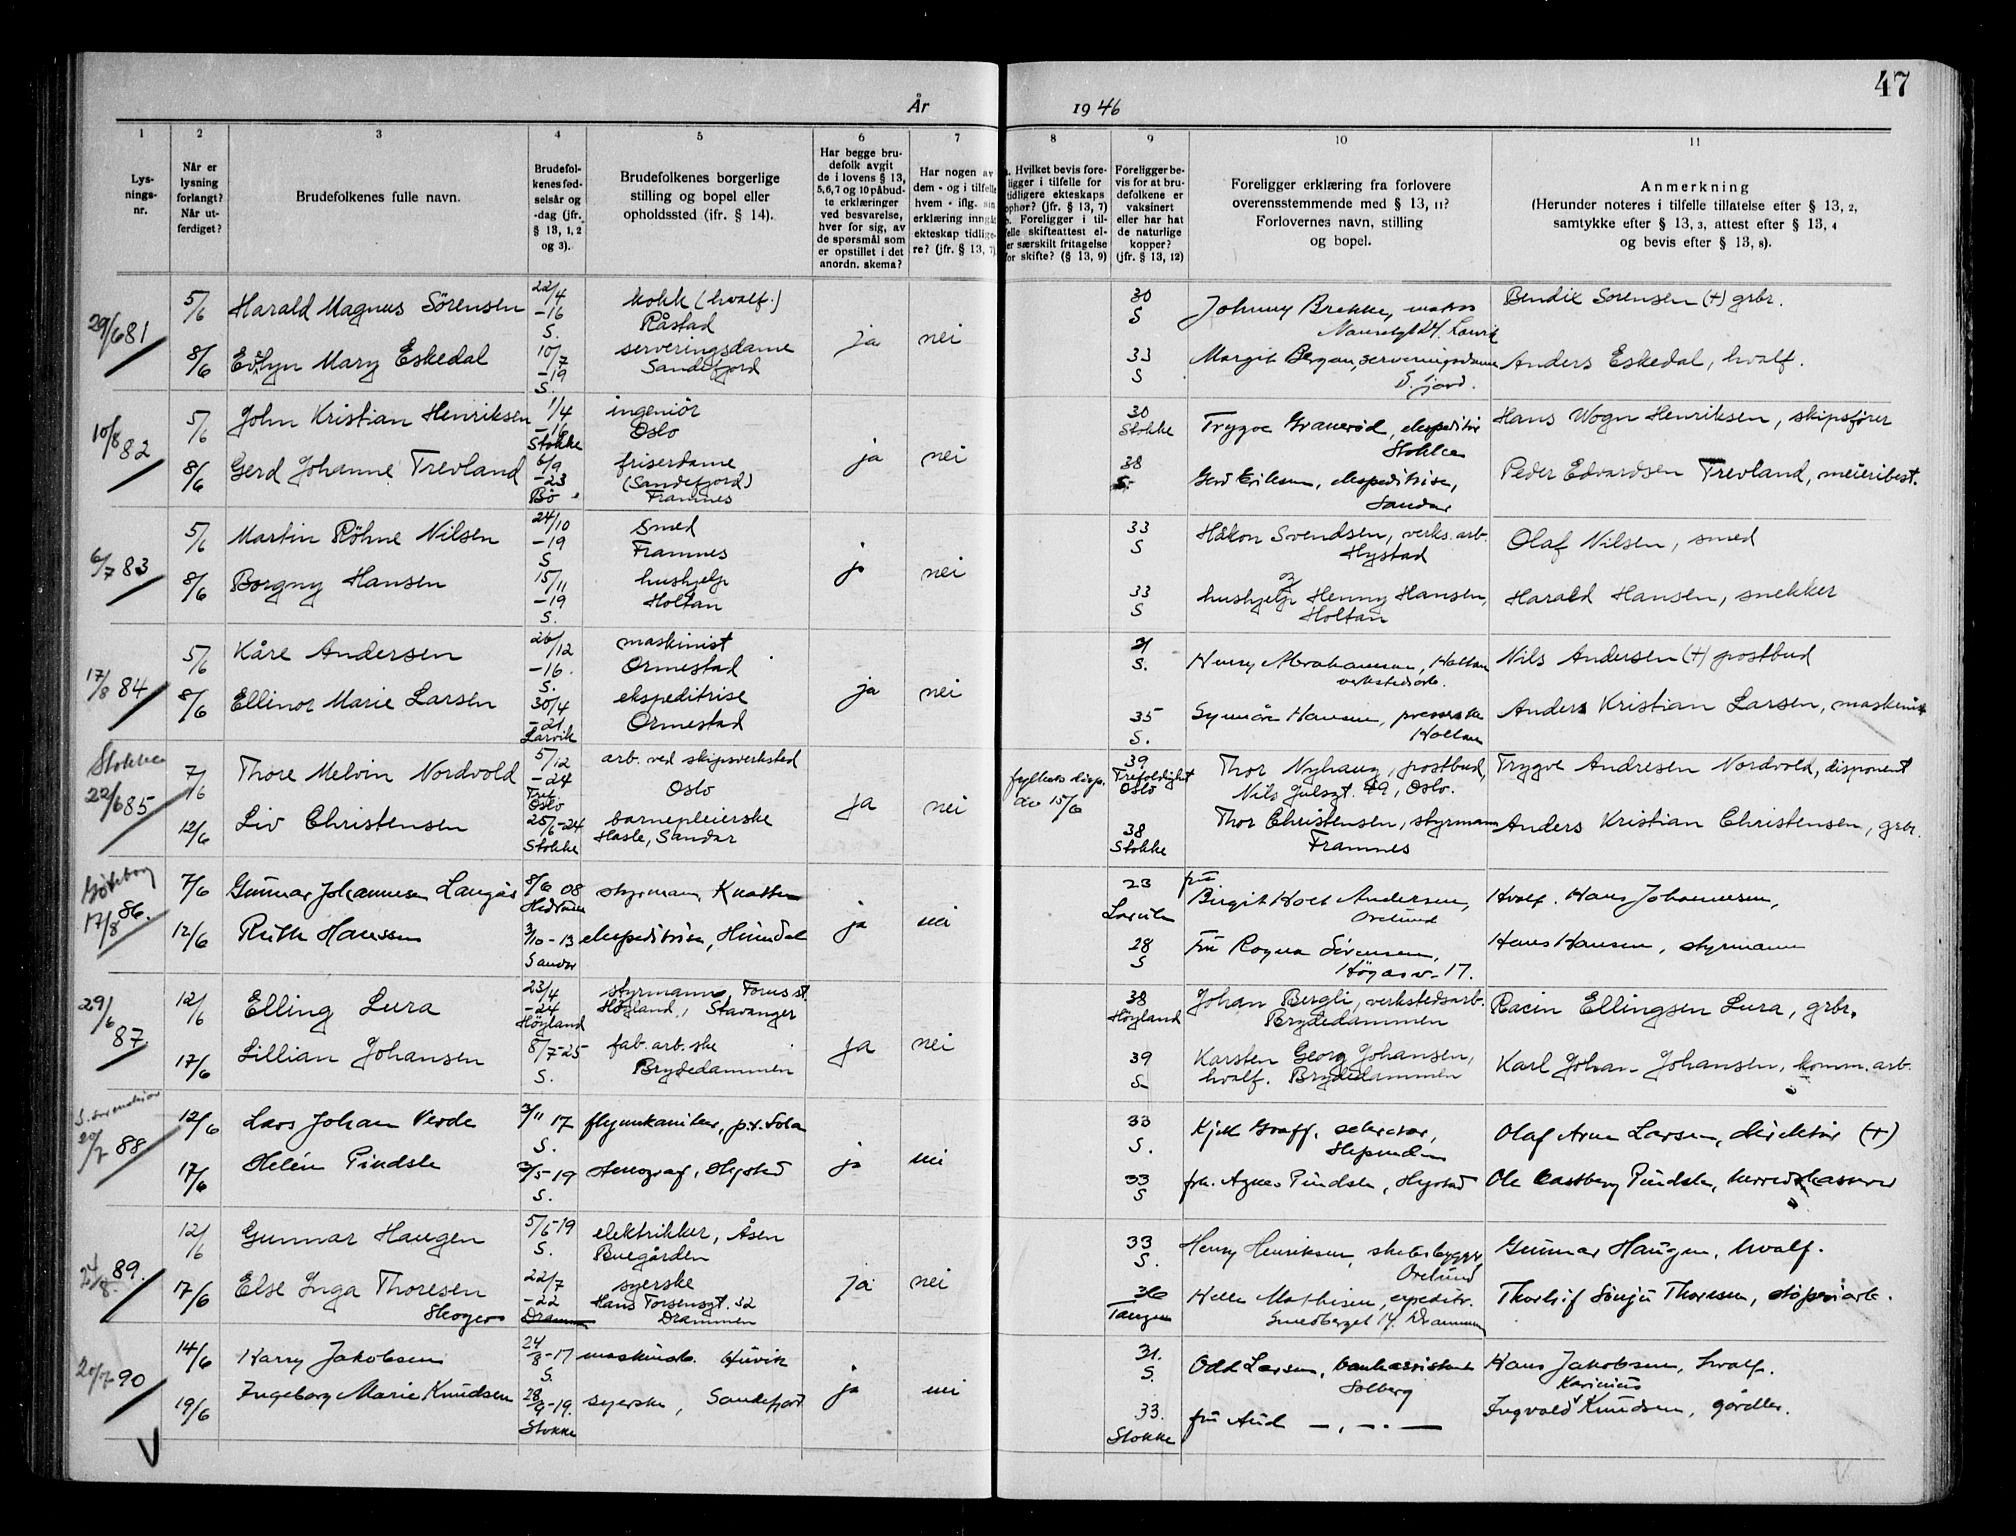 47
År 1946
1 2 3 4 5 6 7 8 9 10 11
Lys-
nings-
nr.
Når er
lysning
forlangt?
Når ut-
ferdiget?
Brudefolkenes fulle navn.
Brudefol-
kenes fød-
selsår og
-dag (jfr.
§ 13, 1, 2
og 3).
Brudefolkenes borgerlige
stilling og bopel eller
opholdssted (ifr. § 14).
Har begge bru-
defolk avgit
de i lovens § 13,
5,6,7 og 10 påbud-
te erklæringer
ved besvarelse,
hver for sig, av
de spørsmål som
er opstillet i det
anordn. skema?
Har nogen av
dem - og i tilfelle
hvem - iflg. sin
erklæring inngåt
ekteskap tidlige-
re? (jfr. § 13, 7)
Hvilket bevis fore-
ligger i tilfelle for
tidligere ekteskaps
ophør? (jfr. § 13, 7)
Foreligger i til-
felle skifteattest el-
ler særskilt fritagelse
for skifte? (§ 13, 9)
Foreligger be-
vis for at bru-
defolkene er
vaksinert
eller har hat
de naturlige
kopper?
(jfr. § 13, 12)
Foreligger erklæring fra forlovere
overensstemmende med § 13, 11?
Forlovernes navn, stilling
og bopel.
Anmerkning
(Herunder noteres i tilfelle tillatelse efter § 13, 2,
samtykke efter § 13, 3, attest efter § 13, 4
og bevis efter § 13, 8).
29/6 81 5/6 Harald Magnus Sörensen 22/4 -16 S. kokk (hvalf.) Råstad 30 S Johnny Brekke, Bendix Sorensen (+) grbr.
ja nei
8/6 Evelyn Mary Eskedal 10/7 -19 S. serveringsdame Sandefjord 33 S Margit Bergan, serveringsdame S.fjord. Anders Eskedal, hvalf.
10/8 82 5/6 John Kristian Henriksen 1/4 -16 Stokke ingeniör Oslo 30 Stokke Trygve Granerød, ekspeditör Stokke Hans Wogn Henriksen, skipsfører
ja nei
8/6 Gerd Johanne Trevland 6/9 -23 Bö friserdame (Sandefjord) Framnes 38 S Gerd Eriksen, ekspeditrise, Sandar Peder Edvardsen Trevland, meieribest.
6/7 83 5/6 Martin Röhne Nilsen 24/10 -19 S smed Framnes 33 S Håkon Svendsen, verks.arb. Hystad Olaf Nilsen, smed
ja nei og
8/6 Borgny Hansen 15/11 -19 S. hushjelp Holtan 33 S hushjelp Henny Hansen, Holtan Harald Hansen, snekker
17/8 84 5/6 Kåre Andersen 26/12 -16. S. maskinist Ormestad S. Henry Abrahamsen, Holtan verkstedarb. Nils Andersen (+) postbud
ja nei
8/6 Ellinor Marie Larsen 30/4 -21 Larvik ekspeditrise Ormestad 35 S. Synnöve Hansen, presserske Holtan Anders Kristian Larsen, maskinist
Stokke
22/6 85 7/6 Thore Melvin Nordvold 5/12 -24 Tref. Oslo arb. ved skipsverksted Oslo fylkets disp. av 15/6 39 Trefoldighet Oslo Thor Nyhaug, postbud, Nils Julsgt. 49, Oslo. Trygve Andresen Nordvold, disponent
ja nei
12/6 Liv Christensen 25/6-24 Stokke barnepleierske Hasle, Sandar 38 Stokke Thor Christensen, styrmann Framnes Anders Kristian Christensen, grbr.
Göteborg
17/8 86. 7/6 Gunnar Johannesen Langås 8/6 08 Hedrum styrmann, Knatten 23 Larvik fru Birgit Holt Andersen, Orelund Hvalf. Hans Johannesen,
ja nei
12/6 Ruth Hanssen 3/10-13 Sandar ekspeditrise, Hunndal 28 S Fru Ragna Sörensen, Högåsv. 17. Hans Hansen, styrmann
29/6 87. 12/6 Elling Lura 23/4 -24 Höyland styrmann, Forus st. Höyland, Stavanger 38 Höyland Johan Bergli, verkstedsarb. Brydedammen Racin Ellingsen Lura, grbr.
ja nei
17/6 Lillian Johansen 8/7-25 S. fab. arb.ske Brydedammen 39 S Karsten Georg Johansen, hvalf. Brydedammen Karl Johan Johansen, komm.arb.
20/7 88 12/6 Lars Johan Verde 3/11 17 S. flymekaniker, p.t. Sola 33 S. Kjell Graff, sekretær, Olaf Arne Larsen, direktør (+)
ja nei
17/6 Helén Pindsle 3/5-19 S. stenograf, Hystad 33 S frk. Agnes Pindsle, Hystad Ole Castberg Pindsle, herredskasserer
24/8. 89. 12/6 Gunnar Haugen 5/5-19 S. elektrikker, Åsen Buegården 33 S. Henry Henriksen, skibsbygger Orelund Gunnar Haugen, hvalf.
ja nei
17/6 Else Inga Thoresen Skoger 22/7 -22 Drammen syerske Hans Torsensgt. 32 Drammen 36 Tangen Helle Mathisen, expeditr. Smedberget 14, Drammen Thorleif Sönju Thoresen, støperiarb.
20/7 90 14/6 Harry Jakobsen 24/8-17 S maskinarb. Huvik 31. S. Odd Larsen, bankassistent Solberg Hans Jakobsen, hvalf.
ja nei
19/6 Ingeborg Marie Knudsen 28/9-19. Stokke syerske, Sandefjord 33. Stokke fru Aud — , — . — Ingvald Karinius Knudsen, gårdbr.
V